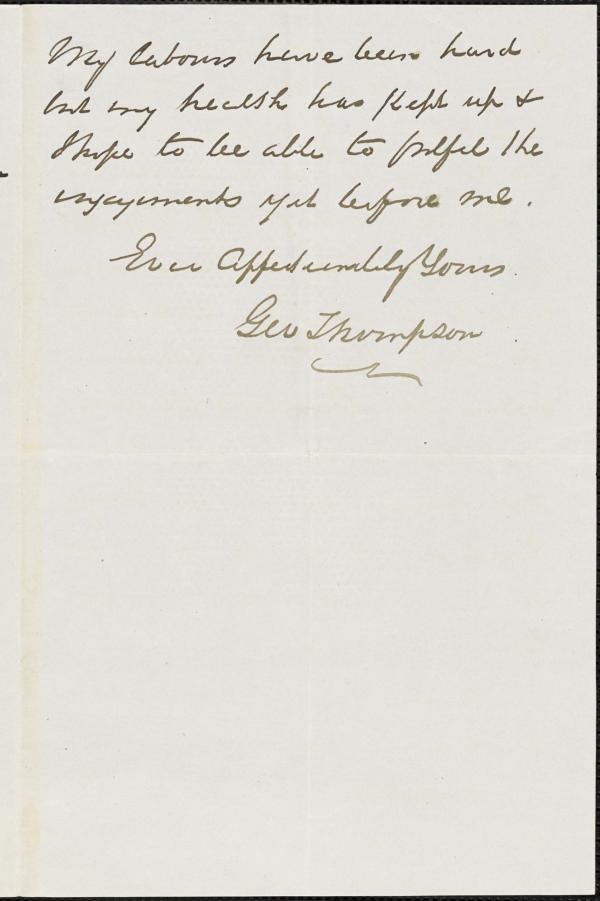 My labours have been hard
but my health has kept up &
I hope to be able to fulfil the
engagements yet before me.
Ever Affectionately Yours
Geo Thompson